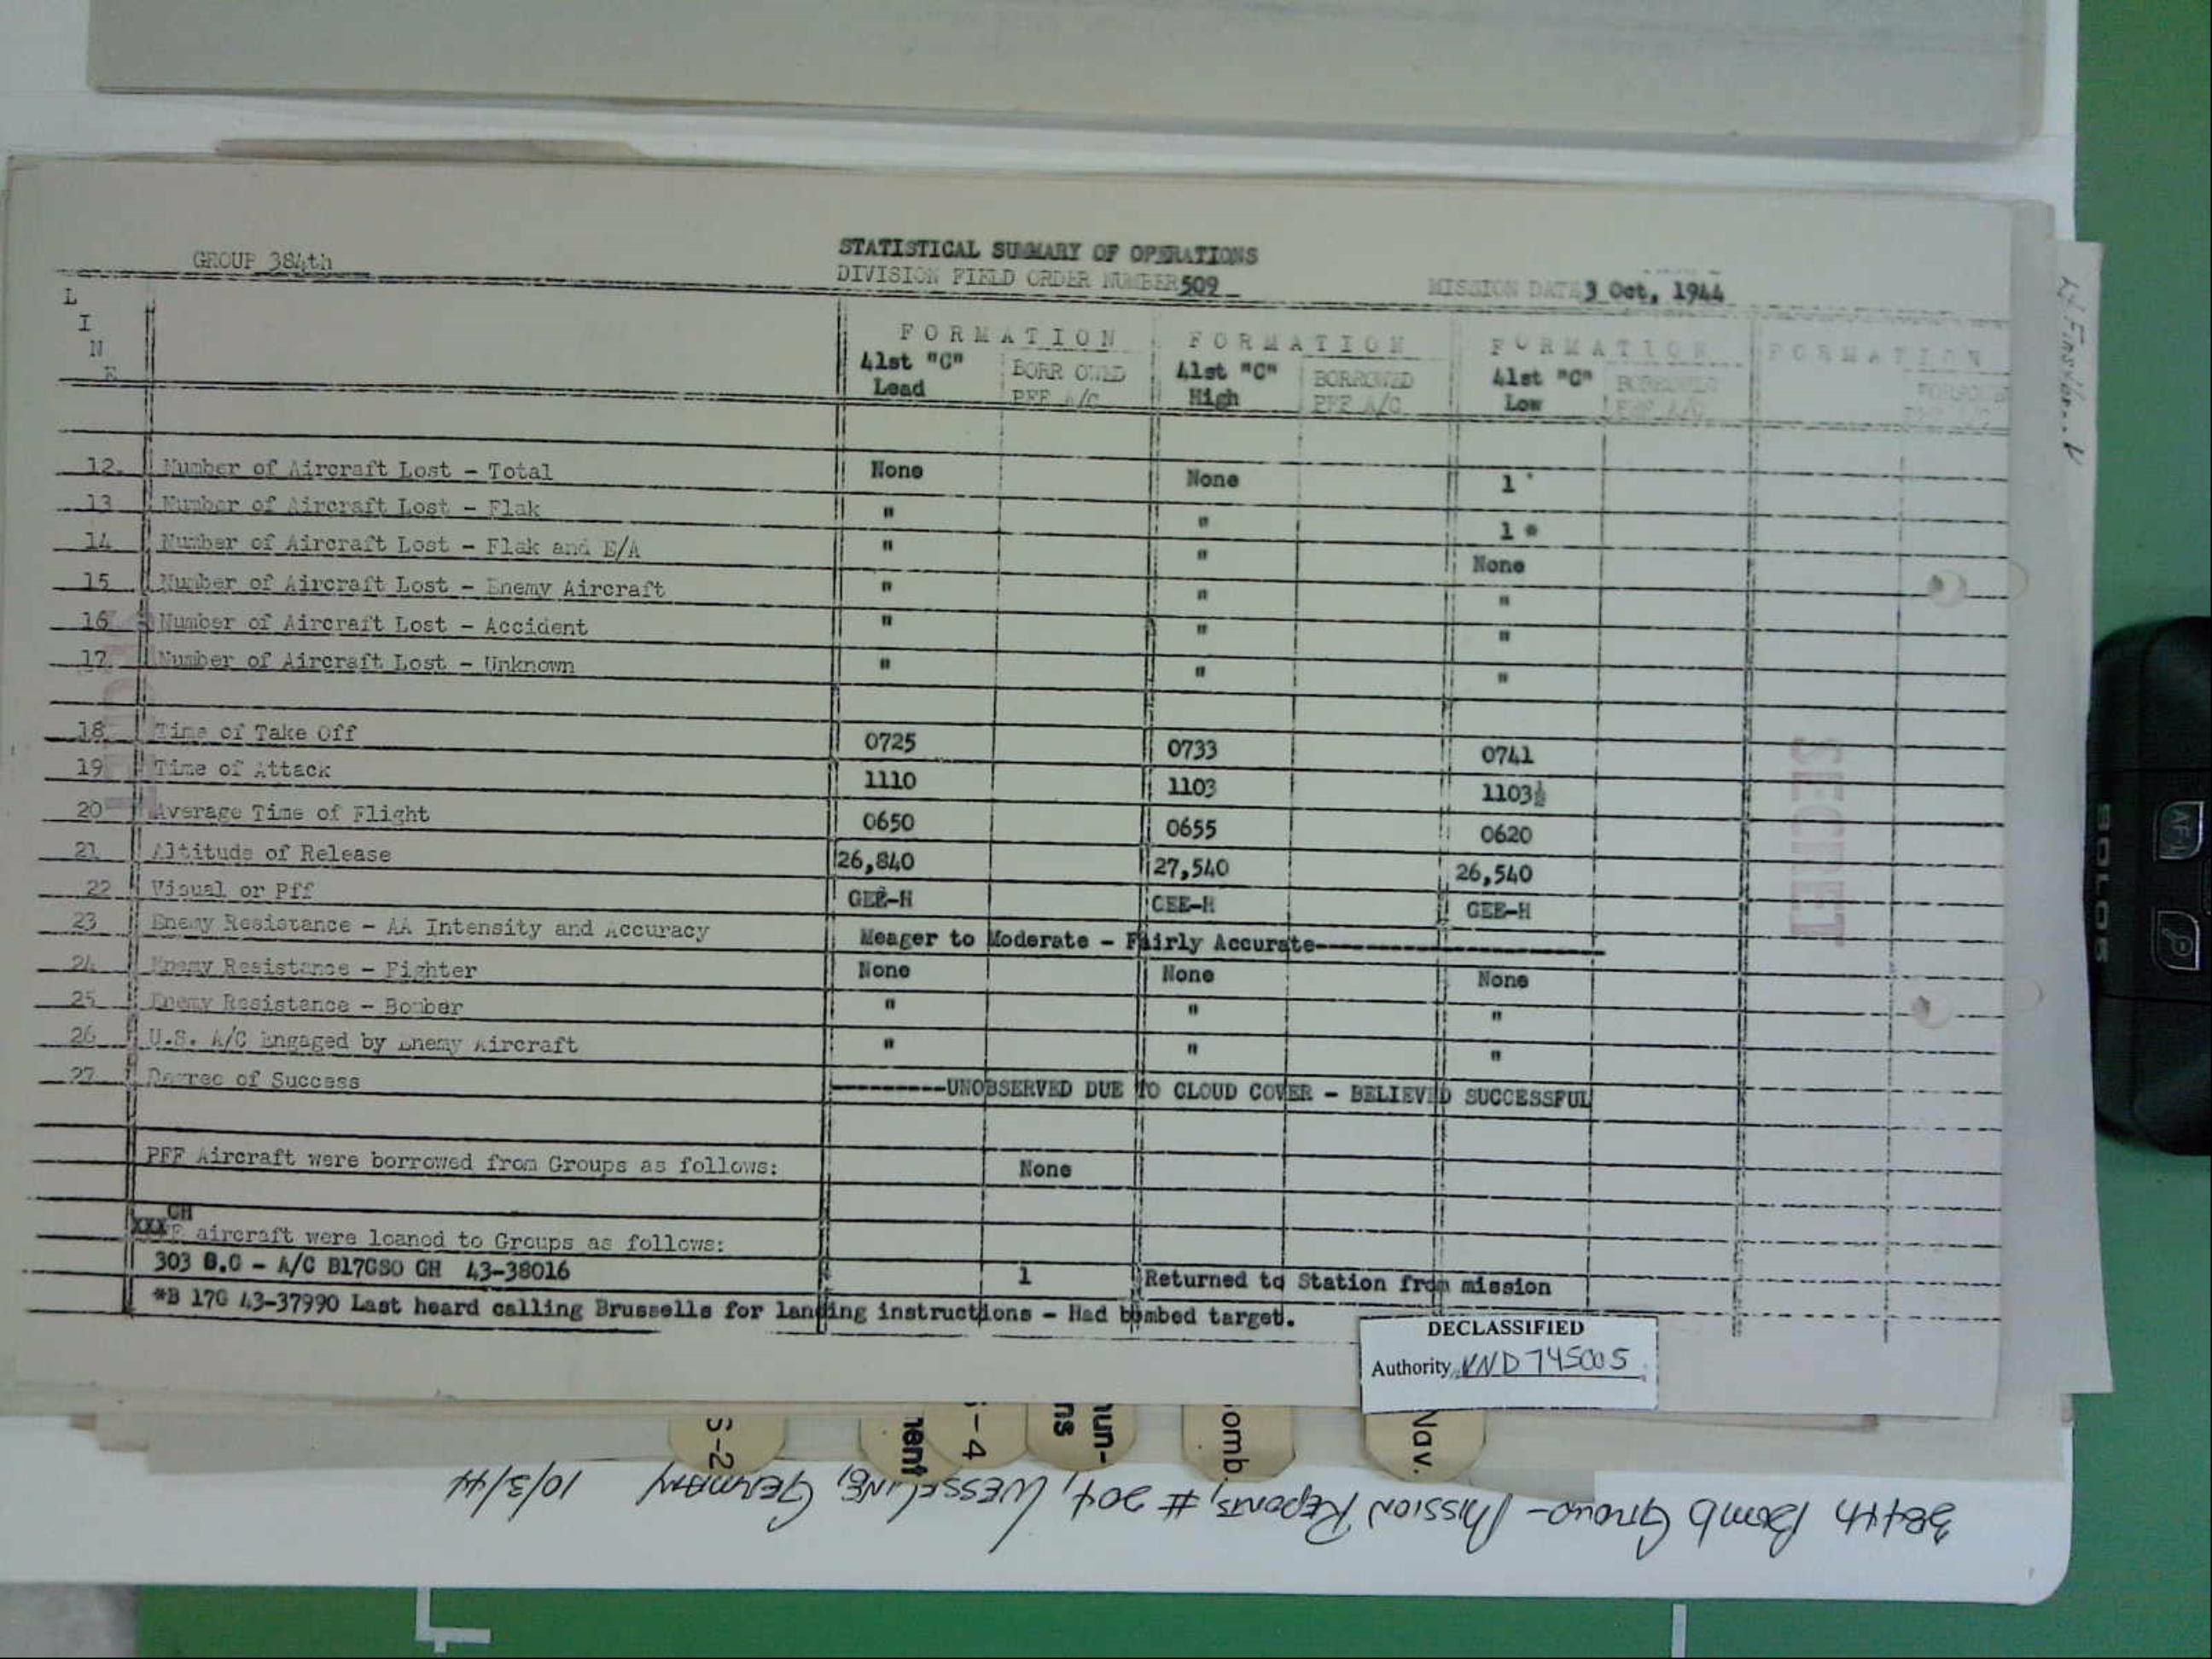 GROUP 384th
STATISTICAL SUMMARY OF OPERATIONS
DIVISION FIELD ORDER NUMBER 509
MISSION DATE 3 Oct, 1944
L
I
N
E
FORMATION FORMATION FORMATION FORMATION
41st "C" Lead BORROWED PFF A/C 41st "C" High BORROWED PFF A/C 41st "C" Low BORROWED PFF A/C
12. Number of Aircraft Lost - Total None None 1
13 Number of Aircraft Lost - Flak " " 1 *
14 Number of Aircraft Lost - Flak and E/A " " None
15 Number of Aircraft Lost - Enemy Aircraft " " "
16 Number of Aircraft Lost - Accident " " "
17 Number of Aircraft Lost - Unknown " " "
18 Time of Take Off 0725 0733 0741
19 Time of Attack 1110 1103 1103½
20 Average Time of Flight 0650 0655 0620
21 Altitude of Release 26,840 27,540 26,540
22 Visual or Pff GEE-H GEE-H GEE-H
23 Enemy Resistance - AA Intensity and Accuracy Meager to Moderate - Fairly Accurate----------
24 Enemy Resistance - Fighter None None None
25 Enemy Resistance - Bomber " " "
26 U.S. A/C Engaged by Enemy Aircraft " " "
27 Degree of Success ---------UNOBSERVED DUE TO CLOUD COVER - BELIEVED SUCCESSFUL
PFF Aircraft were borrowed from Groups as follows: None
GH
XXXF aircraft were loaned to Groups as follows:
303 B.G - A/C B17GSO GH 43-38016 1 Returned to Station from mission
*B 17G 43-37990 Last heard calling Brussells for landing instructions - Had bombed target.
SECRET
DECLASSIFIED
Authority NND 745005
S-2
ment
-4
mun-
ns
omb.
Nav.
384th Bomb Group - Mission Reports, # 204, Wesseling, Germany 10/3/44
AF-1